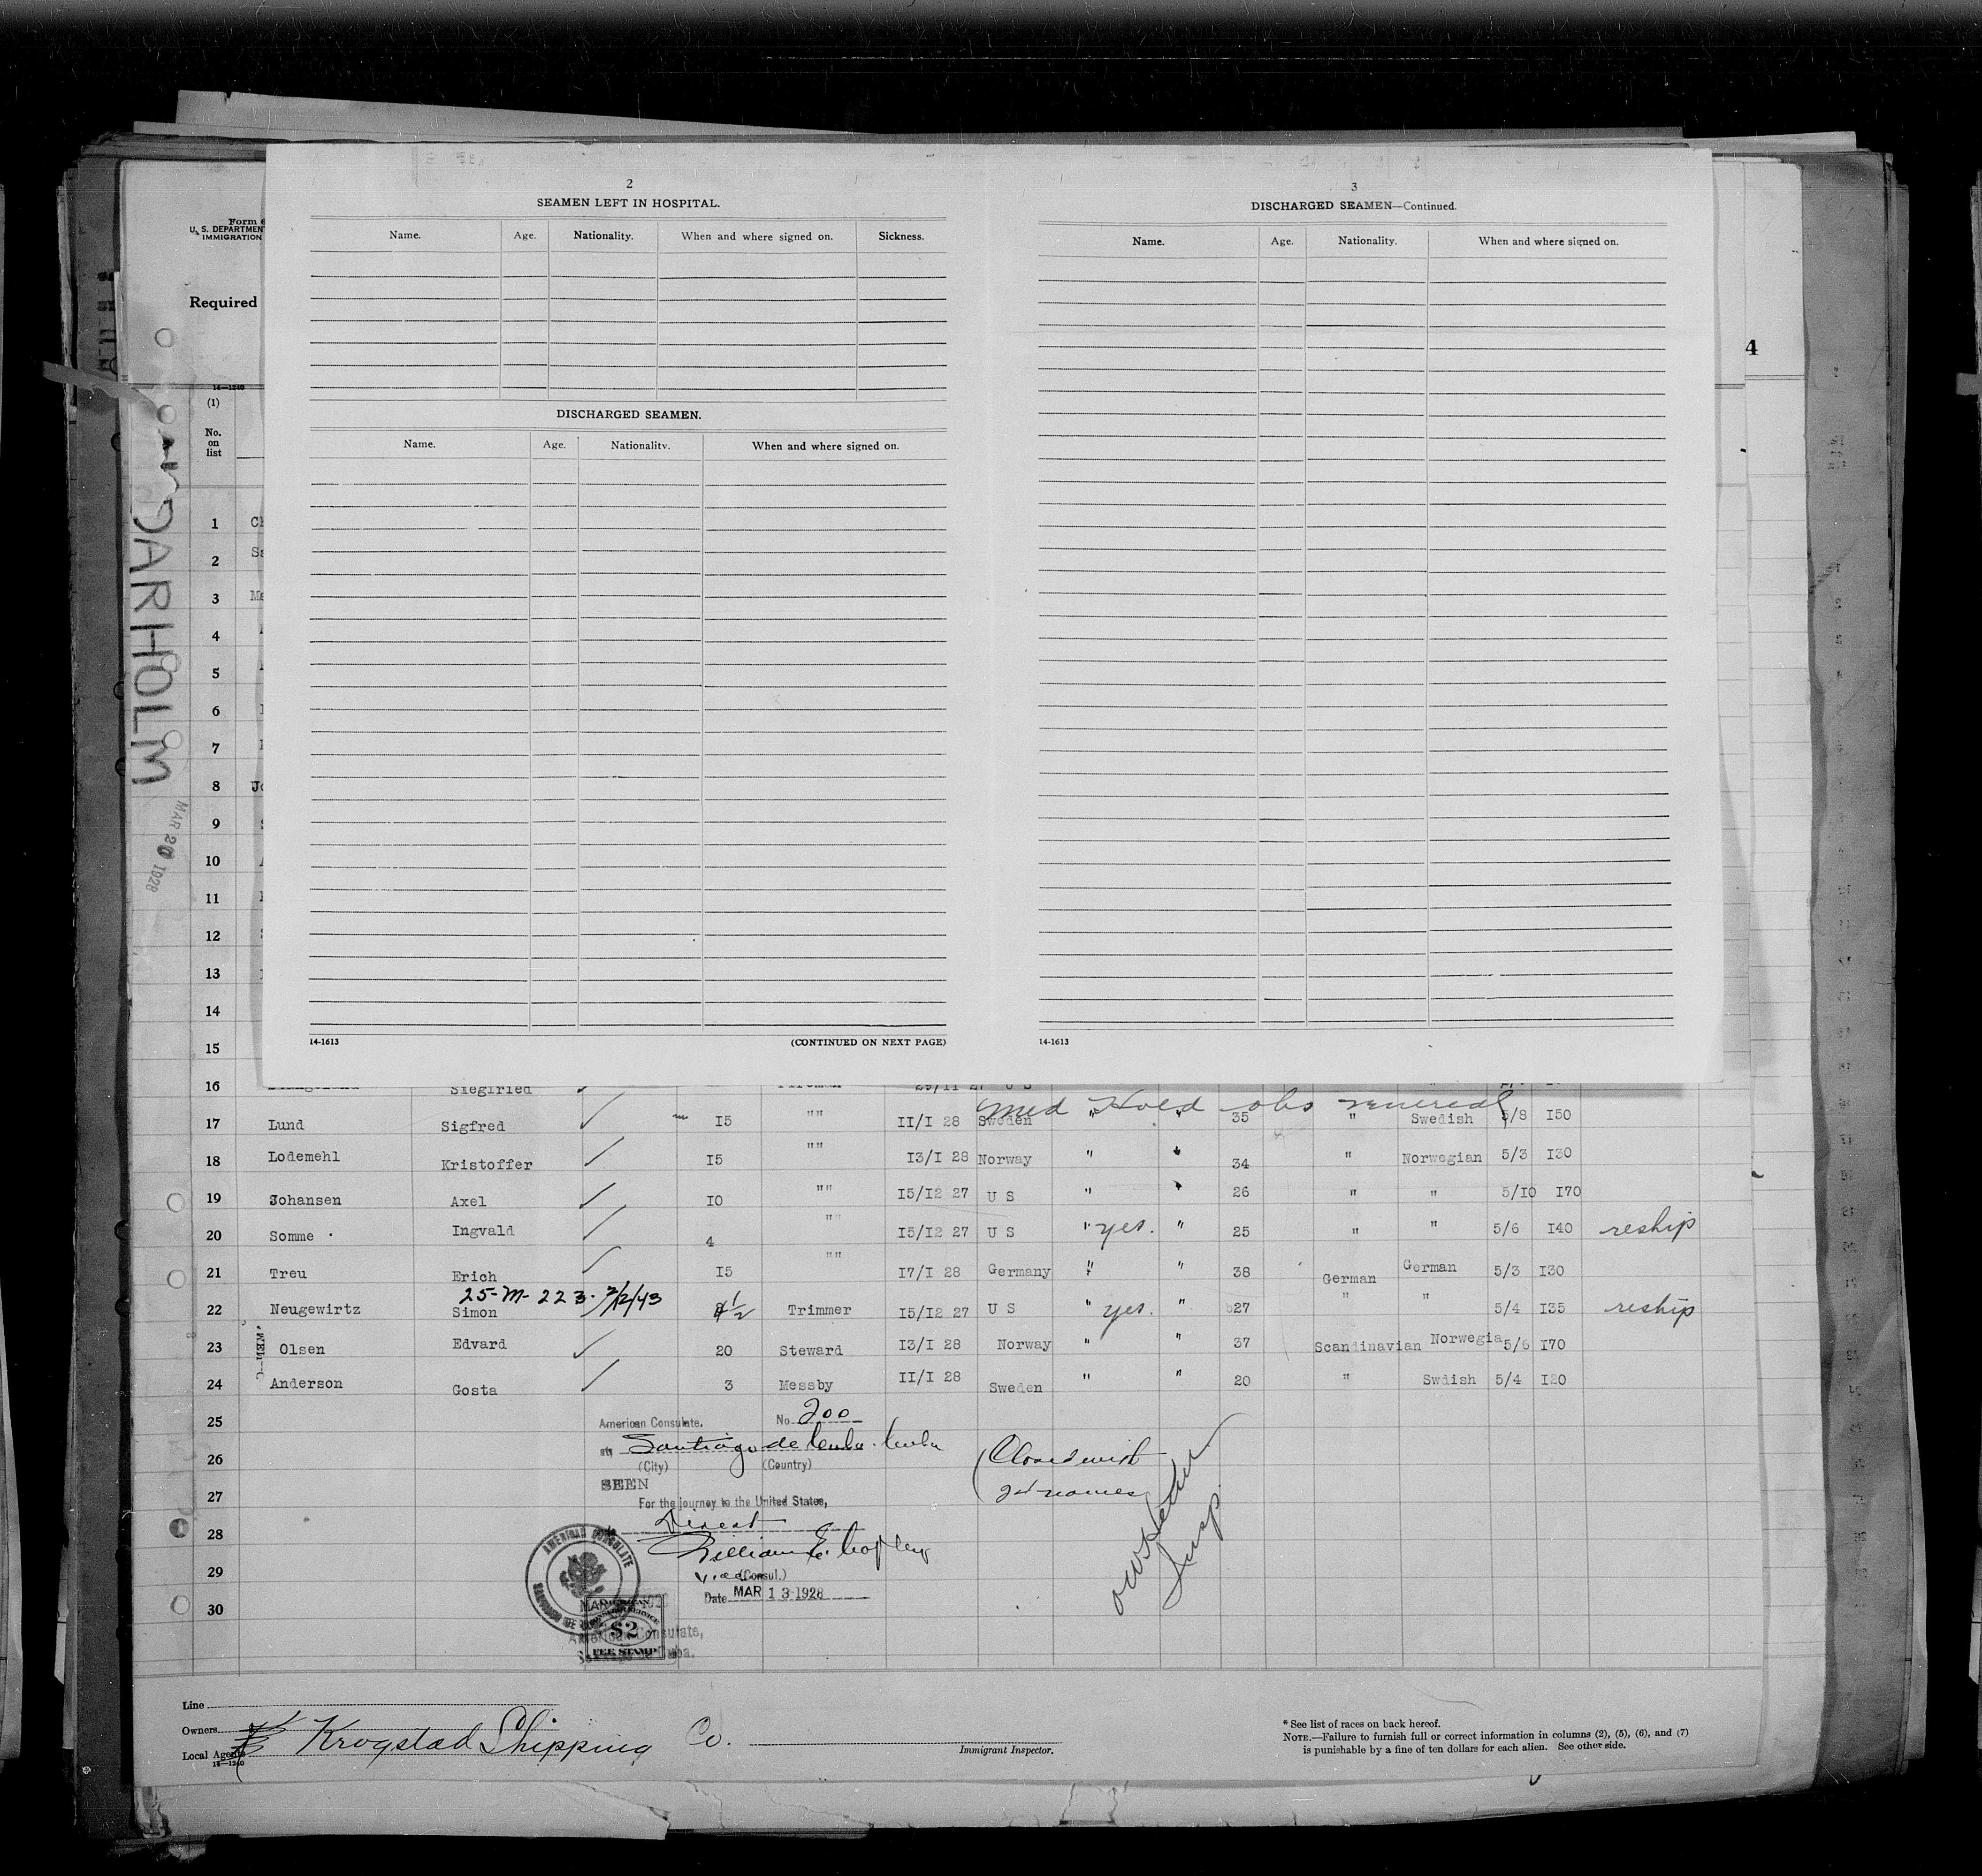 2
SEAMEN LEFT IN HOSPITAL.
Name. Age. Nationality. When and where signed on. Sickness.
DISCHARGED SEAMEN.
Name. Age. Nationality. When and where signed on.
14-1613 (CONTINUED ON NEXT PAGE)
3
DISCHARGED SEAMEN—Continued.
Name. Age. Nationality. When and where signed on.
14-1613
4
Form
U. S. DEPARTMENT
IMMIGRATION
Required
14—1240
(1)
No.
on
list
DARHOLM
MAR 20 1928
1
2
3
4
5
6
7
8
9
10
11
12
13
14
15
16 Siegfried
Med Hold obs venereal
17 Lund Sigfred 15 "" 11/1 28 Sweden " " 35 " Swedish 5/8 150
18 Lodemehl Kristoffer 15 "" 13/1 28 Norway " " 34 " Norwegian 5/3 130
19 Johansen Axel 10 "" 15/12 27 U S " " 26 " " 5/10 170
20 Somme Ingvald 4 "" 15/12 27 U S " yes. " 25 " " 5/6 140 reship
21 Treu Erich 15 "" 17/1 28 Germany " " 38 German German 5/3 130
25-M-223-
22 Neugewirtz Simon 1/2 Trimmer 15/12 27 U S " yes. " 27 " " 5/4 135 reship
23 Olsen Edvard 20 Steward 13/1 28 Norway " " 37 Scandinavian Norwegia 5/6 170
24 Anderson Gosta 3 Messby 11/1 28 Sweden " " 20 " Swdish 5/4 120
25
26
27
28
29
30
American Consulate. No. 200
at Santiago de Cuba. Cuba
(City) (Country)
SEEN
For the journey to the United States,
Direct
William E.
Vice (Consul.)
Date MAR 13 1928
Closed with
24 names
Insp
AMERICAN CONSULATE
SANTIAGO DE CUBA
AMERICAN
SERVICE
$2
FEE STAMP
American Consulate,
Santiago de Cuba.
Line
Owners
Local Agents
Krogstad Shipping Co.
14—1240
Immigrant Inspector.
* See list of races on back hereof.
NOTE.—Failure to furnish full or correct information in columns (2), (5), (6), and (7)
is punishable by a fine of ten dollars for each alien. See other side.